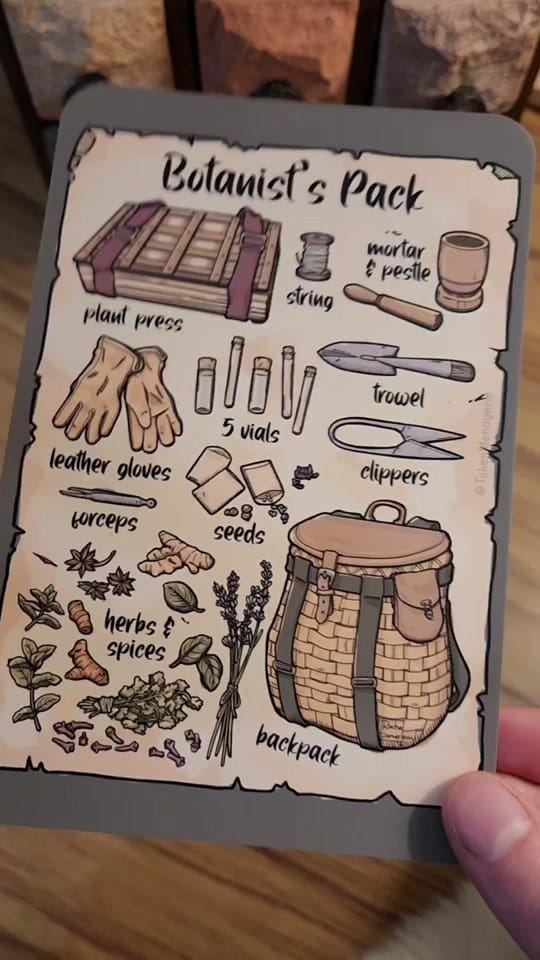 Botanist's Pack
plant press
string
mortar
& pestle
trowel
5 vials
leather gloves
clippers
forceps
seeds
herbs &
spices
backpack